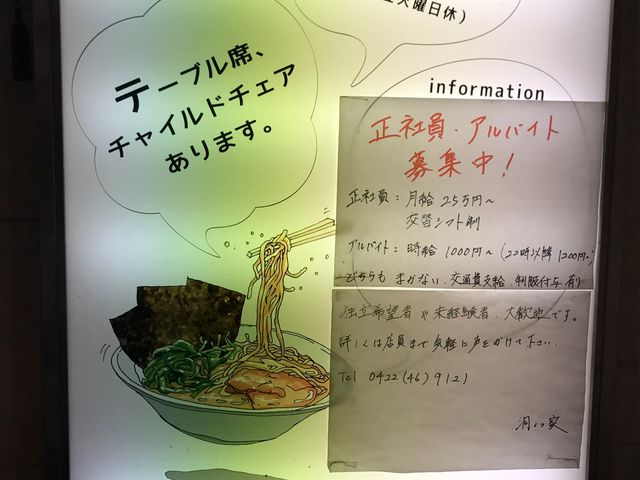 火曜日休)
テーブル席、
チャイルドチェア
あります。
information
正社員・アルバイト
募集中!
正社員:月給 25万円〜
交替シフト制
アルバイト:時給 1000円〜(22時以降1200円〜)
どちらも まかない、交通費支給、制服付与 有り
独立希望者や未経験者、大歓迎です。
詳しくは店員まで気軽に声をかけて下さい。
Tel 0422(46)9121